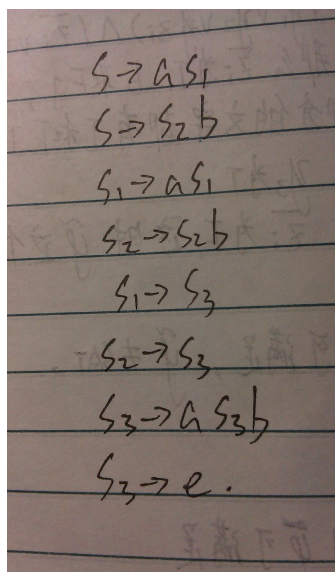 S→aS1
S→S2b
S1→aS1
S2→S2b
S1→S3
S2→S3
S3→aS3b
S3→e.